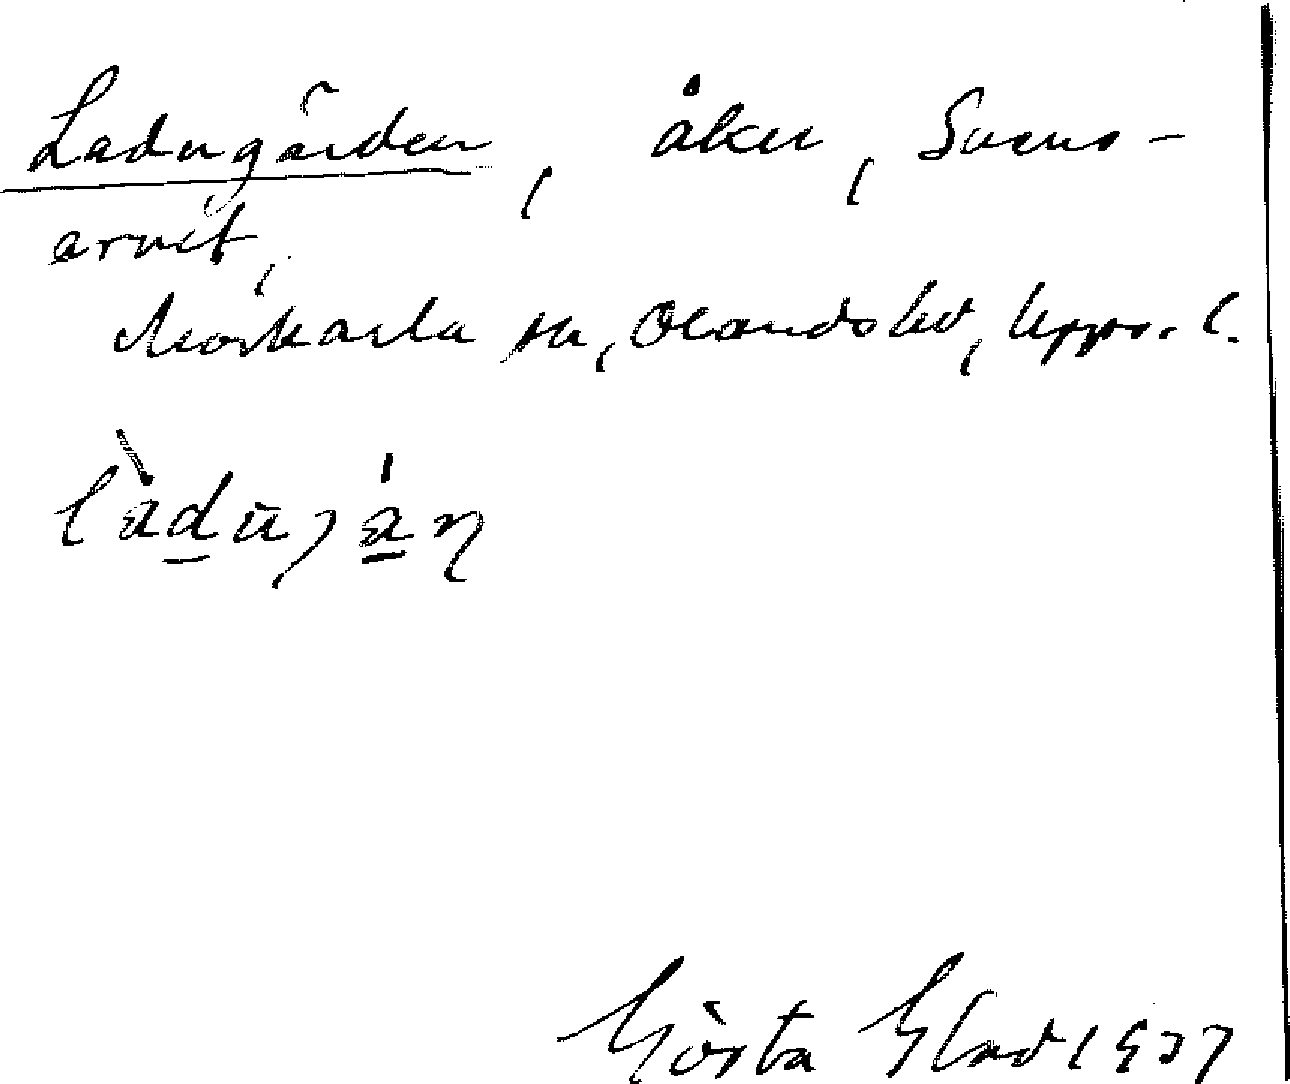 Ladugården, åker, Svens-
arvet,
Morkarla sn, Olands hd, Upps. l.
làduján
Gösta Glad 1937